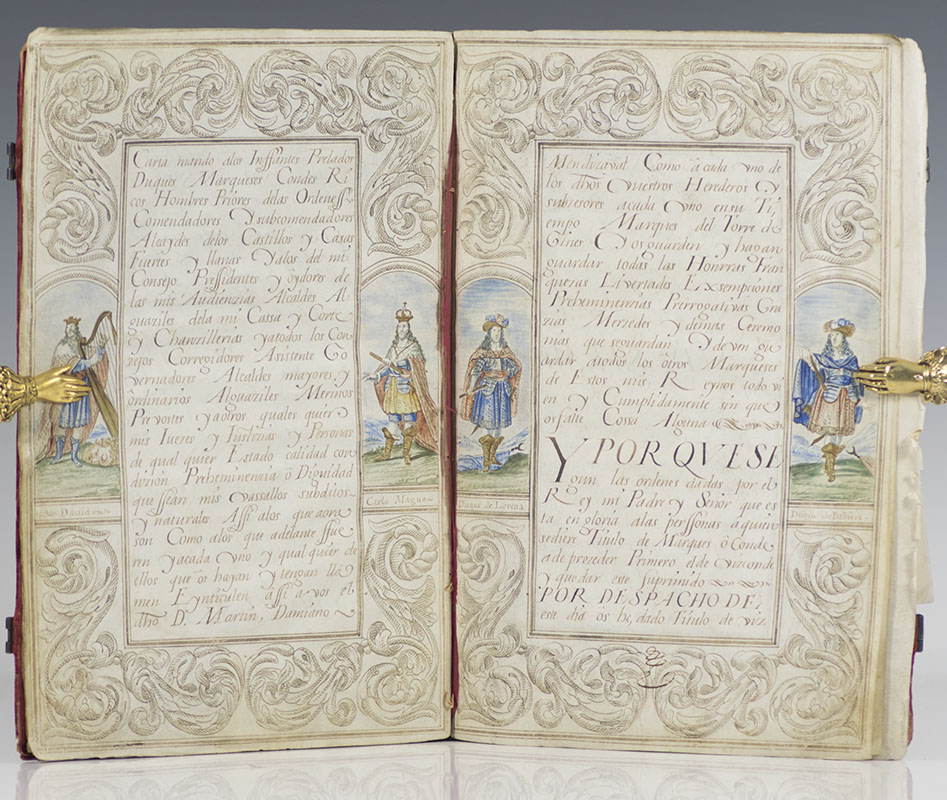 Carta mando alos Inffantes Prelados
Duques Marqueses Condes Ri
cos Hombres Priores delas Ordenes
Comendadores y subcomendadores
Alcaydes delos Castillos y Casas
Fuertes y llanas yalos del mi
Consejo Pressidentes y oydores de
las mis Audienzias Alcaldes Al
guaziles dela mi Cassa y Corte
y Chanzillerias yatodos los Con
zejos Corregidores Asistente Go
vernadores Alcaldes mayores y
ordinarios Alguaziles Merinos
Prevostes yaotros quales quier
mis Iuezes y Iustizias y Personas
de qual quier Estado calidad con
dizion Preheminenzia ô Dignidad
que ssean mis vassallos subditos
y naturales Assi alos que aora
son Como alos que adelante ffue
ren yacada vno y qual quier de
ellos que ôs hagan y tengan lla
men Eyntitulen assi avos el
dho D. Martin, Damiano
Rey Dauid
Carlo Magno
Mendizaval Como âcada vno de
los dhos vuestros Herederos y
subzesores acada vno ensu Ti
empo Marques del Torre de
Gines Y os guarden y hagan
guardar todas las Honrras Fran
quezas Livertades Exsempziones
Preheminenzias Prerrogativas Gra
zias Merzedes y demas Ceremo
nias que seguardan y deven gu
ardar atodos los ôtros Marqueses
de Estos mis Reynos todo vi
en y Cumplidamente sin que
osfalte Cossa Alguna
Y POR QVE SE
Gun las ordenes dadas por el
Rey mi Padre y Señor que es
ta en gloria alas perssonas aquien
sediere Titulo de Marques ô Conde
a de prezeder Primero el de vizconde
y quedar este suprimido
POR DESPACHO DE,
este dia ôs he, dado Titulo de viz
Duque de Lorena
Duque de Babiera